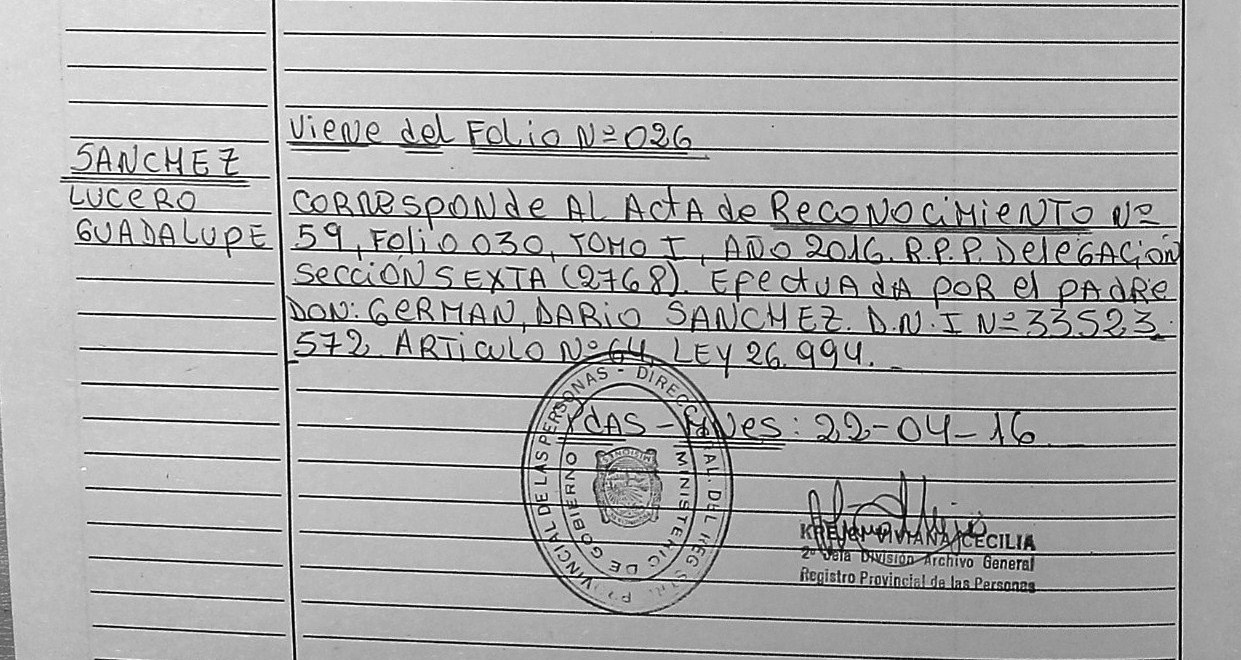 Viene del Folio Nº 026
SANCHEZ
LUCERO
GUADALUPE
CORRESPONDE AL ACTA de RECONOCIMIENTO Nº
59, FOLIO 030, TOMO I, AÑO 2016. R.P.P. DELEGACIÓN
SECCIÓN SEXTA (2768). EFECTUADA POR el PADRE
DON: GERMAN, DARIO SANCHEZ. D.N.I Nº 33523.
572. ARTICULO Nº 64. LEY 26.994.-
PdAS - MNes: 22-04-16
PROVINCIAL DE LAS PERSONAS - DIRECC AL. DEL REGISTR.
MINISTERIO DE GOBIERNO
MISIONES
VIVIANA CECILIA
2º Jefa División Archivo General
Registro Provincial de las Personas